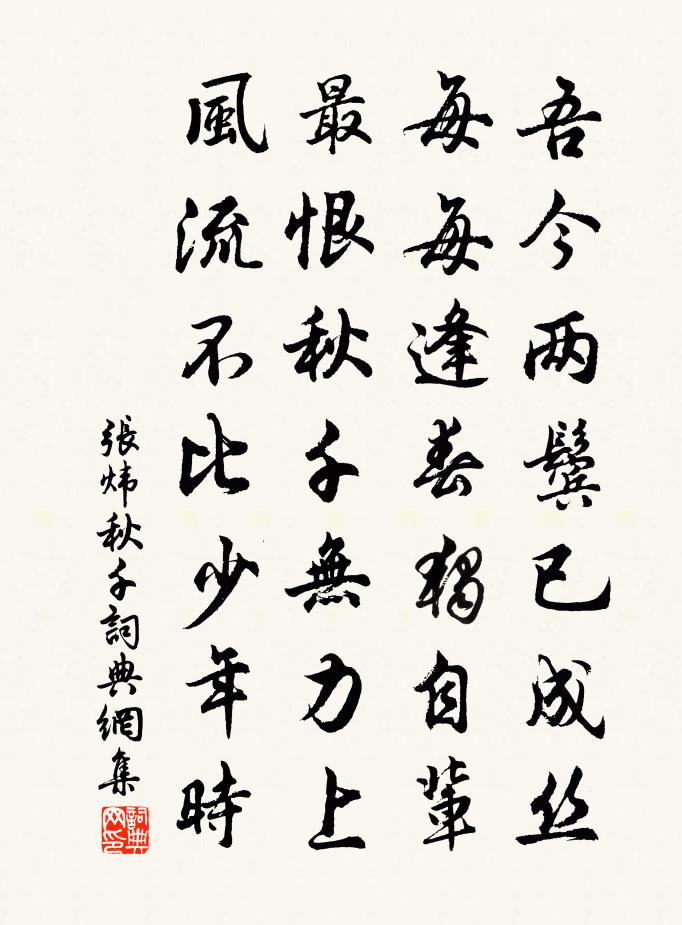 吾今两鬢已成丝
每每逢春獨自輩
最恨秋千無力上
風流不比少年時
張炜秋千詞典網集
詞典网印